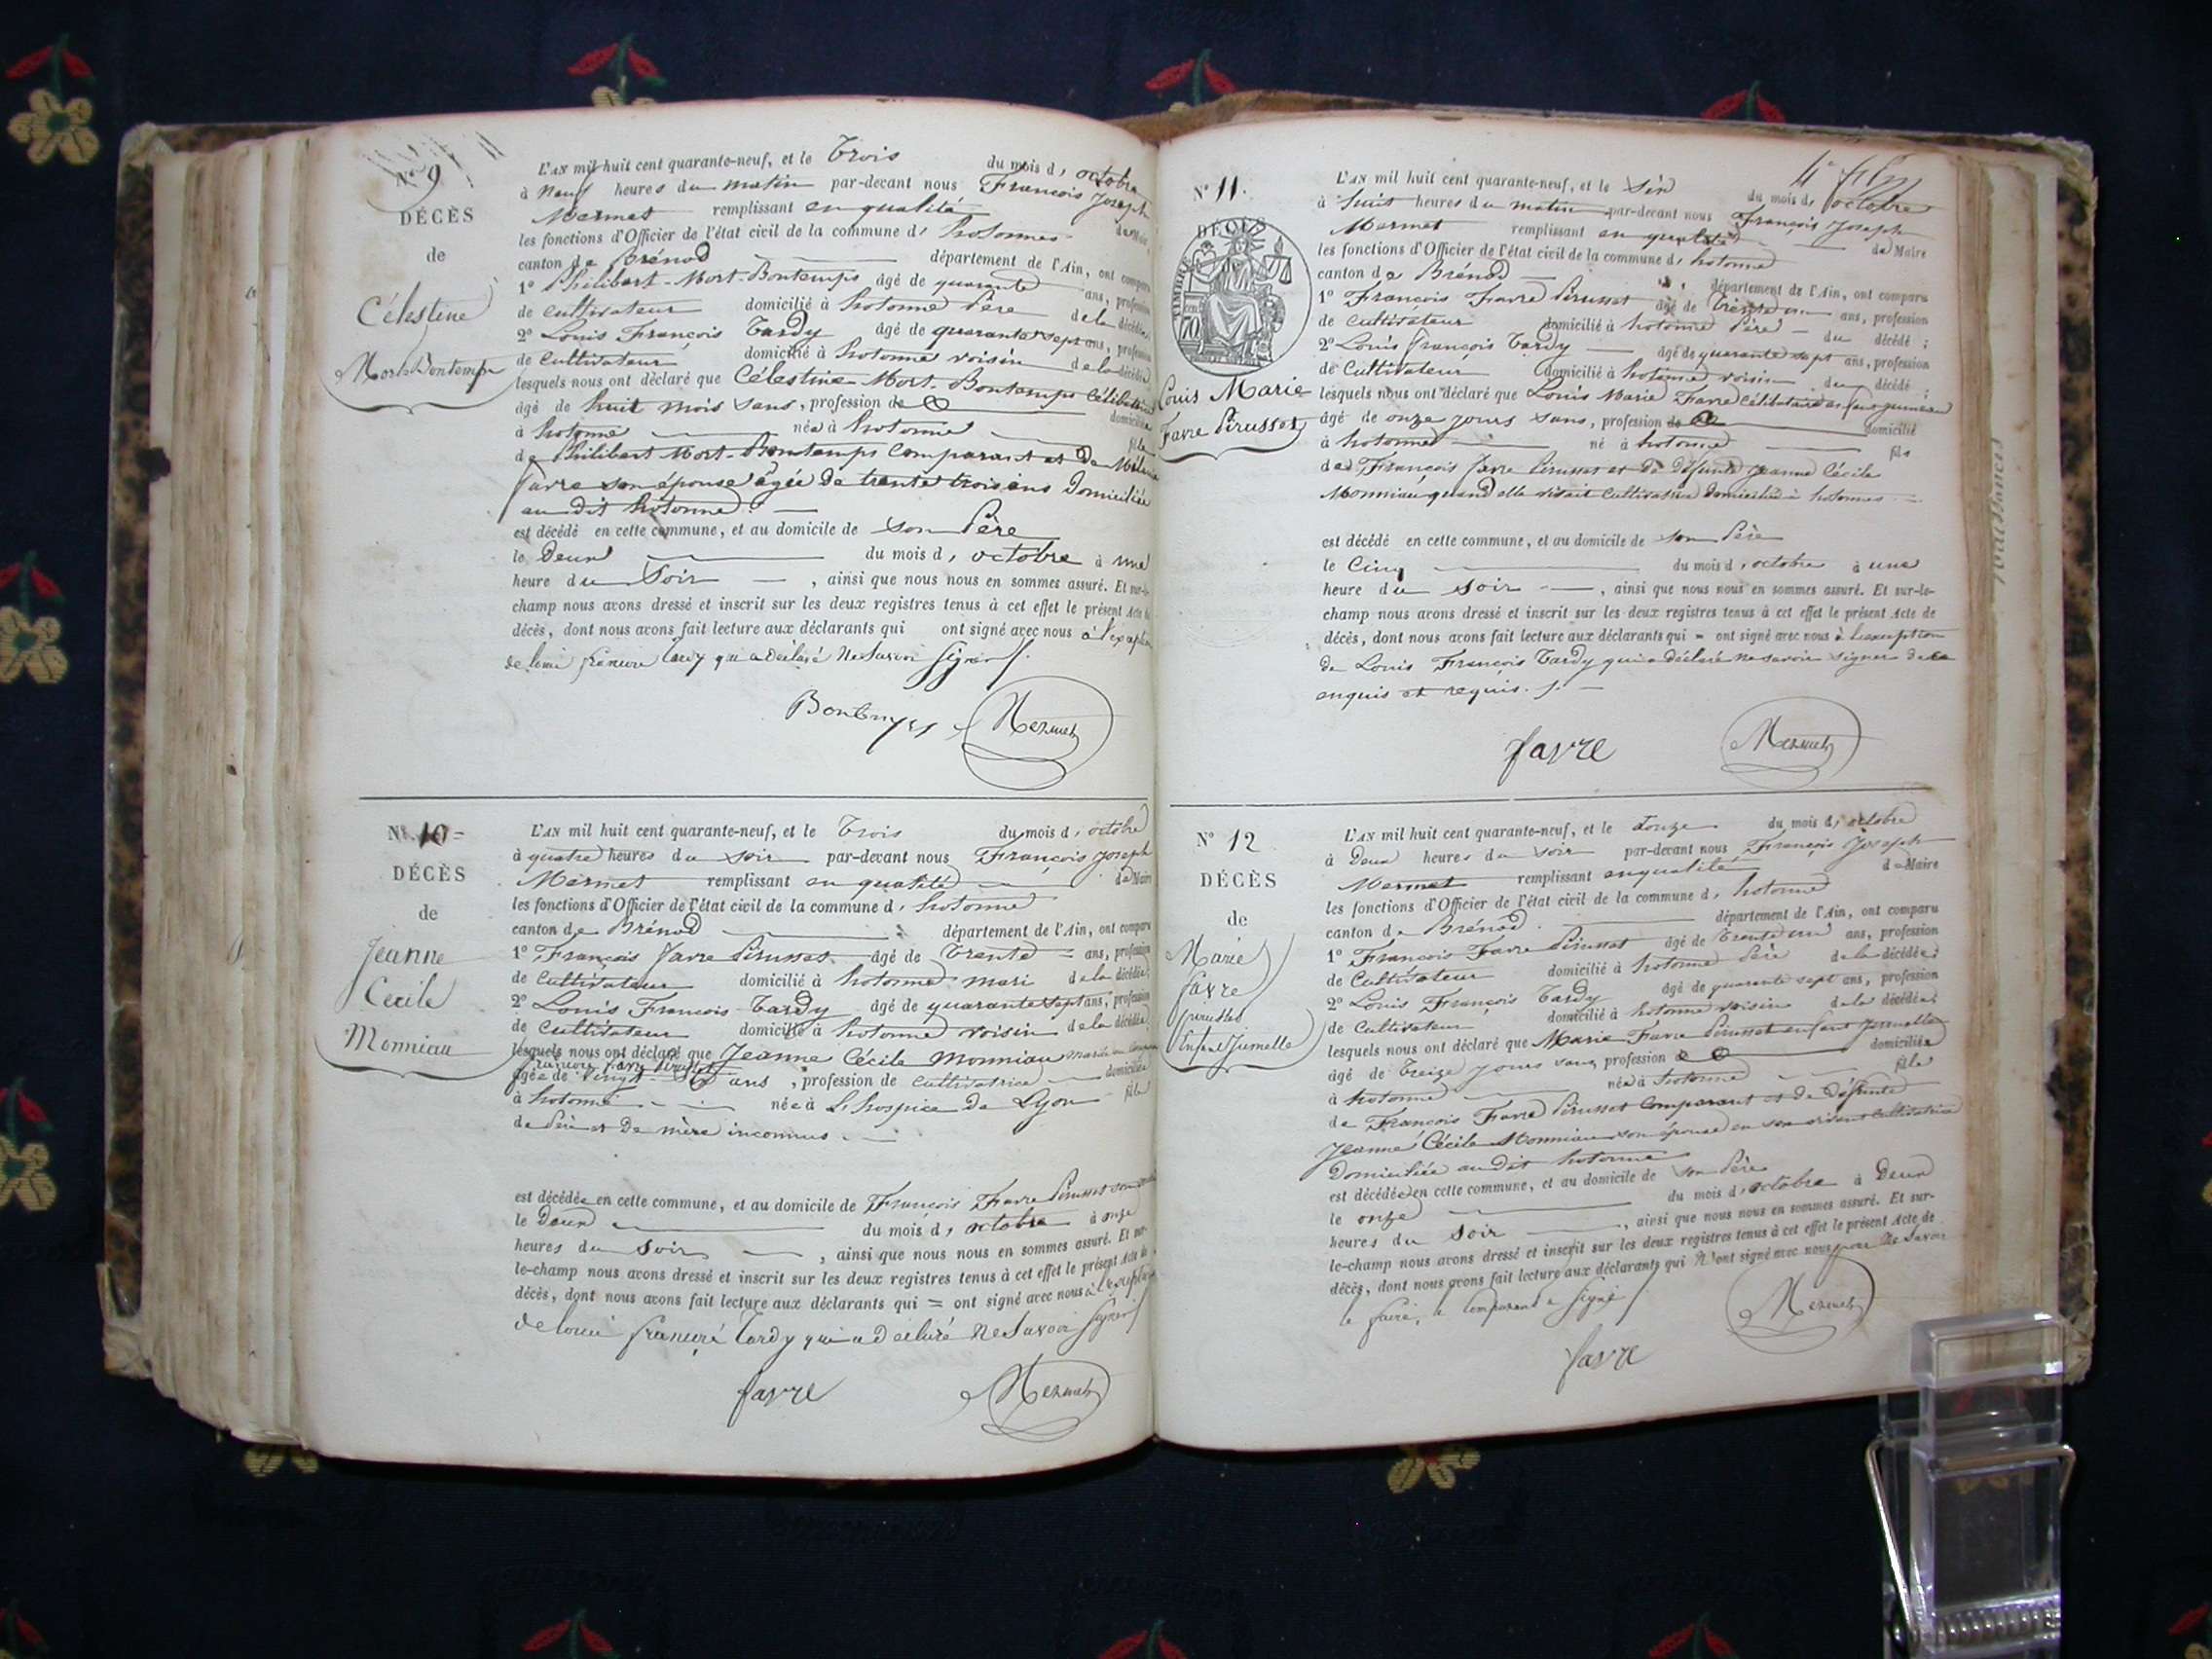 N° 9
DÉCÈS
de
Célestine
Mort-Bontemps
L'AN mil huit cent quarante-neuf, et le Trois du mois d' octobre
à Neuf heures du matin par-devant nous François Joseph
Mermet remplissant en qualité de Maire
les fonctions d'Officier de l'état civil de la commune d' hotonnes
canton de Brénod département de l'Ain, ont comparu
1° Philibert-Mort-Bontemps âgé de quarante ans, profession
de cultivateur domicilié à hotonne Père de la décédée
2° Louis François Tardy âgé de quarante sept ans, profession
de Cultivateur domicilié à hotonne voisin de la décédée
lesquels nous ont déclaré que Célestine Mort-Bontemps Célibataire
âgé de huit mois sans, profession de domiciliée
à hotonne née à hotonne fille
de Philibert Mort-Bontemps Comparant et de Mélanie
favre son épouse âgée de trente trois ans Domiciliée
au dit hotonne.
est décédé en cette commune, et au domicile de son Père
le Deux du mois d' octobre à une
heure du Soir , ainsi que nous nous en sommes assuré. Et sur-le-
champ nous avons dressé et inscrit sur les deux registres tenus à cet effet le présent Acte de
décès, dont nous avons fait lecture aux déclarants qui ont signé avec nous à l'exception
de Tardy qui a déclaré Ne Savoir Signer
Bontemps Mermet
N° 10
DÉCÈS
de
Jeanne
Cécile
Monniau
L'AN mil huit cent quarante-neuf, et le Trois du mois d' octobre
à quatre heures du soir par-devant nous François Joseph
Mermet remplissant en qualité de Maire
les fonctions d'Officier de l'état civil de la commune d' hotonne
canton de Brénod département de l'Ain, ont comparu
1° François favre Pérusset âgé de Trente ans, profession
de Cultivateur domicilié à hotonne mari de la décédée
2° Louis François Tardy âgé de quarante sept ans, profession
de Cultivateur domicilié à hotonne voisin de la décédée
lesquels nous ont déclaré que Jeanne Cécile Monniau
favre Pérusset
âgée de Vingt ans , profession de Cultivatrice domiciliée
à hotonne née à L'hospice de Lyon fille
de Père et De mère inconnus
est décédée en cette commune, et au domicile de François Favre Pérusset
le Deux du mois d' octobre à onze
heures du Soir , ainsi que nous nous en sommes assuré. Et sur-
le-champ nous avons dressé et inscrit sur les deux registres tenus à cet effet le présent Acte de
décès, dont nous avons fait lecture aux déclarants qui = ont signé avec nous à l'exception
de Tardy qui a déclaré Ne Savoir Signer
favre Mermet
N° 11.
DÉCÈS
TIMBRE
70
Louis Marie
Favre Pérusset
L'AN mil huit cent quarante-neuf, et le Six du mois d' octobre
à huit heures du matin par-devant nous François Joseph
Mermet remplissant en qualité de Maire
les fonctions d'Officier de l'état civil de la commune d' hotonne
canton de Brénod département de l'Ain, ont comparu
1° François Favre Pérusset âgé de Trente un ans, profession
de Cultivateur domicilié à hotonne Père du décédé ;
2° Louis françois Tardy âgé de quarante sept ans, profession
de Cultivateur domicilié à hotonne voisin du décédé ;
lesquels nous ont déclaré que Louis Marie Favre Célibataire enfant jumeau
âgé de onze jours sans, profession de domicilié
à hotonne né à hotonne fils
de François favre Pérusset et de Défunte Jeanne Cécile
Monniau quand elle vivait Cultivatrice domiciliée à hotonnes
est décédé en cette commune, et au domicile de son Père
le Cinq du mois d' octobre à une
heure du Soir , ainsi que nous nous en sommes assuré. Et sur-le-
champ nous avons dressé et inscrit sur les deux registres tenus à cet effet le présent Acte de
décès, dont nous avons fait lecture aux déclarants qui = ont signé avec nous à l'exception
de Louis François Tardy qui a déclaré ne savoir signer de ce
enquis et requis.
favre Mermet
N° 12
DÉCÈS
de
Marie
favre
perusset
Enfant Jumelle
L'AN mil huit cent quarante-neuf, et le Douze du mois d' octobre
à Deux heures du soir par-devant nous François Joseph
Mermet remplissant en qualité de Maire
les fonctions d'Officier de l'état civil de la commune d' hotonne
canton de Brénod département de l'Ain, ont comparu
1° François Favre Pérusset âgé de Trente un ans, profession
de Cultivateur domicilié à hotonne Père de la décédée
2° Louis François Tardy âgé de quarante sept ans, profession
de Cultivateur domicilié à hotonne voisin de la décédée
lesquels nous ont déclaré que Marie Favre Pérusset enfant Jumelle
âgé de Treize jours sans profession domiciliée
à hotonne née à hotonne fille
de François Favre Pérusset Comparant et de Défunte
Jeanne Cécile Monniau son épouse en son vivant Cultivatrice
Domiciliée au dit hotonne
est décédée en cette commune, et au domicile de son Père
le onze du mois d' octobre à Deux
heures du Soir , ainsi que nous nous en sommes assuré. Et sur-
le-champ nous avons dressé et inscrit sur les deux registres tenus à cet effet le présent Acte de
décès, dont nous avons fait lecture aux déclarants qui N'ont signé avec nous pour Ne Savoir
le faire, le Comparant a signé
Mermet
favre